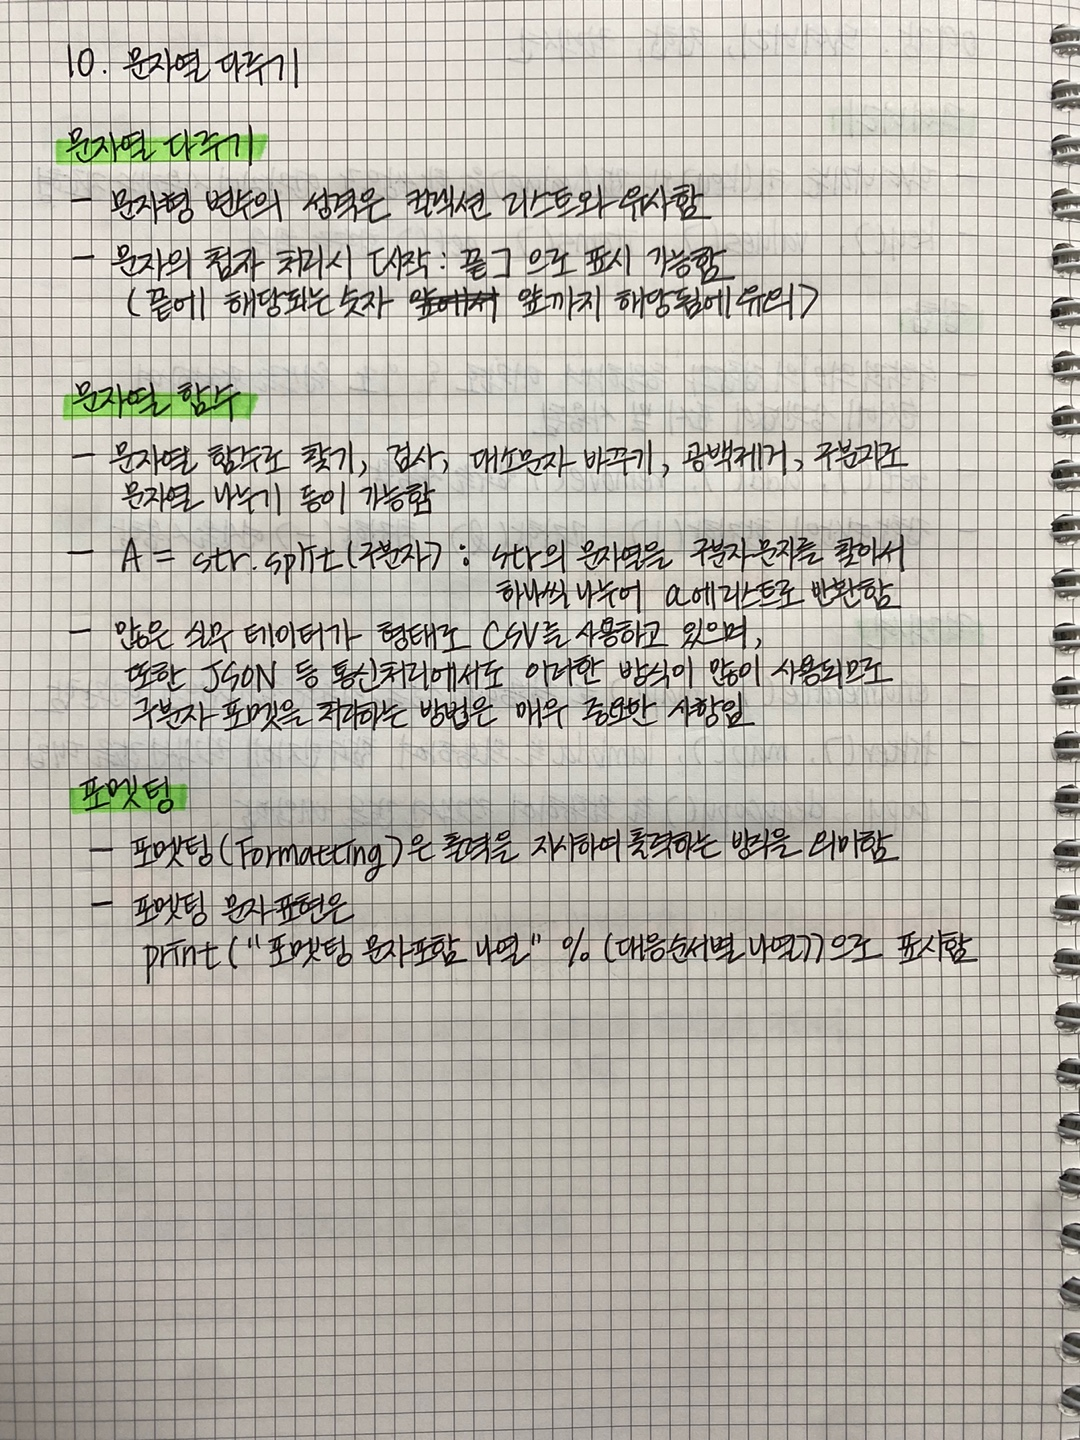 10. 문자열 다루기
문자열 다루기
- 문자형 변수의 성격은 컬렉션 리스트와 유사함
- 문자의 첨자 처리시 [시작:끝]으로 표시 가능함
(끝에 해당되는 숫자 앞에서 앞까지 해당됨에 유의)
문자열 함수
- 문자열 함수로 찾기, 검사, 대소문자 바꾸기, 공백제거, 구분자로
문자열 나누기 등이 가능함
- A = str.split(구분자) : str의 문자열을 구분자 문자를 찾아서
하나씩 나누어 a에 리스트로 반환함
- 많은 실무 데이터가 형태로 CSV를 사용하고 있으며,
또한 JSON 등 통신처리에서도 이러한 방식이 많이 사용되므로
구분자 포멧을 처리하는 방법은 매우 중요한 사항임
포멧팅
- 포멧팅(Formatting)은 출력을 지시하여 출력하는 방식을 의미함
- 포멧팅 문자 표현은
print("포멧팅 문자포함 나열" % (대응순서별 나열))으로 표시함